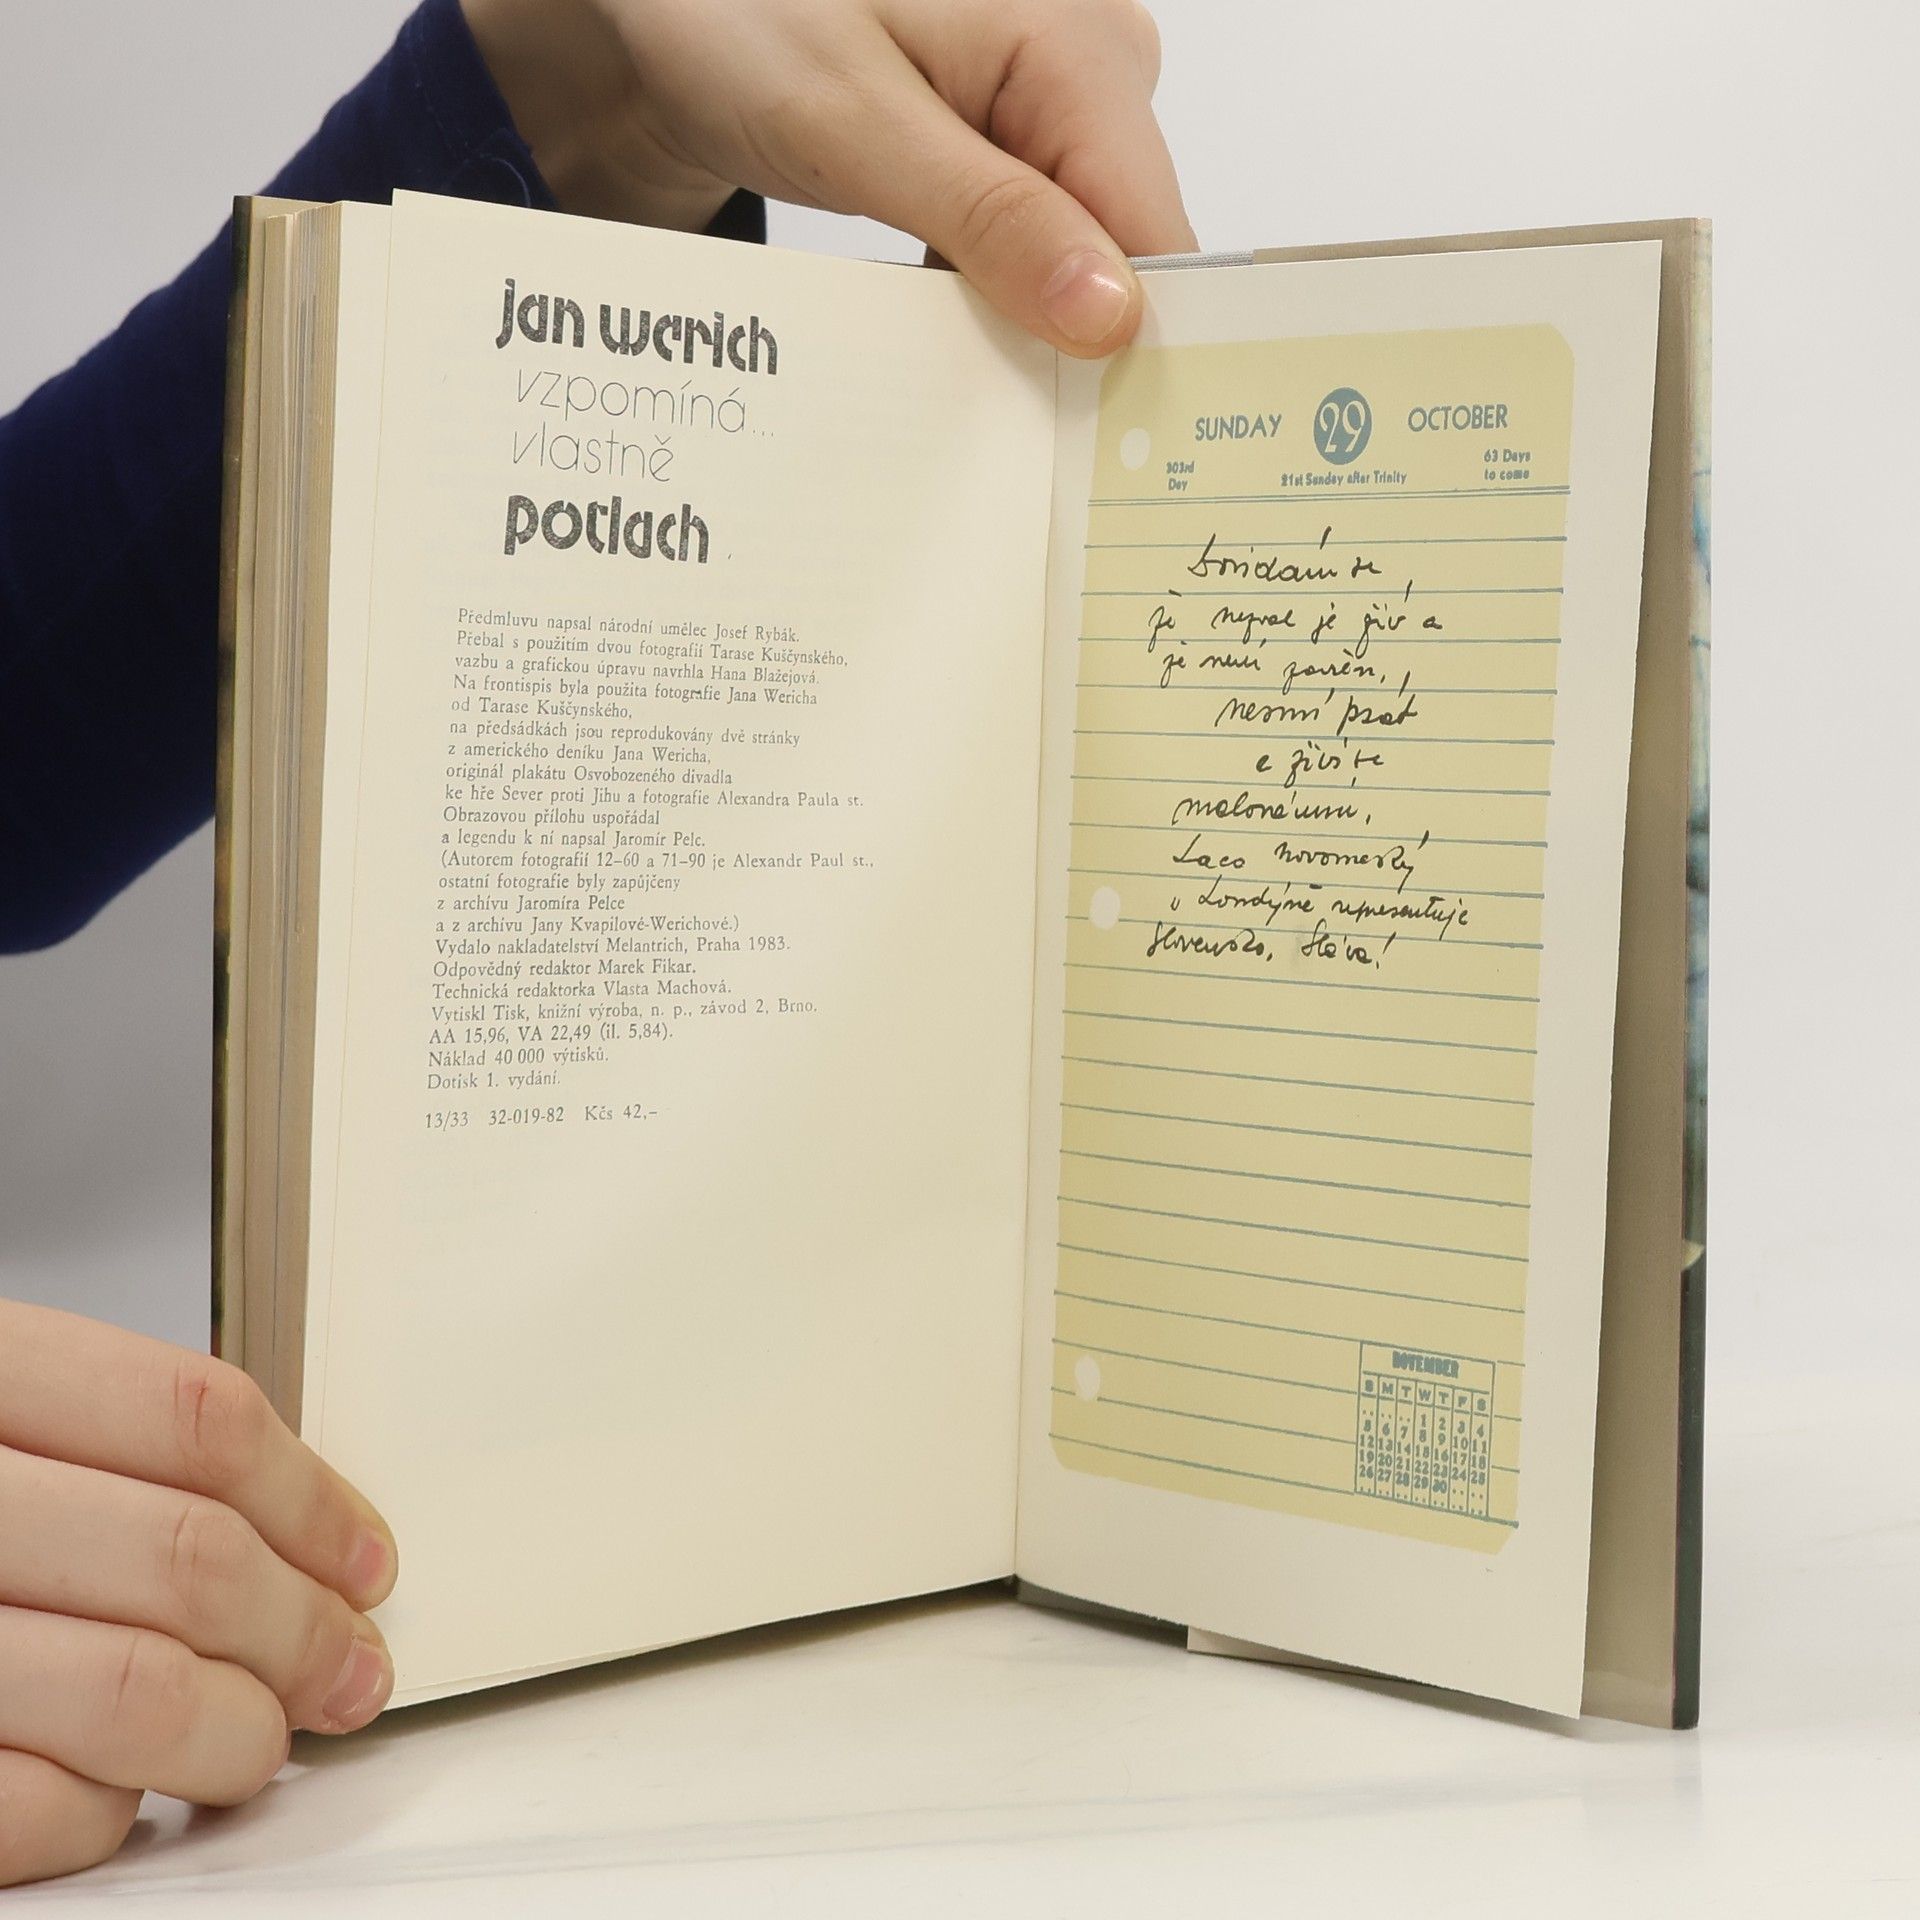 jan werich
vzpomíná...
vlastně
potlach
Předmluvu napsal národní umělec Josef Rybák.
Přebal s použitím dvou fotografií Tarase Kuščynského,
vazbu a grafickou úpravu navrhla Hana Blažejová.
Na frontispis byla použita fotografie Jana Wericha
od Tarase Kuščynského,
na předsádkách jsou reprodukovány dvě stránky
z amerického deníku Jana Wericha,
originál plakátu Osvobozeného divadla
ke hře Sever proti Jihu a fotografie Alexandra Paula st.
Obrazovou přílohu uspořádal
a legendu k ní napsal Jaromír Pelc.
(Autorem fotografií 12–60 a 71–90 je Alexandr Paul st.,
ostatní fotografie byly zapůjčeny
z archívu Jaromíra Pelce
a z archívu Jany Kvapilové-Werichové.)
Vydalo nakladatelství Melantrich, Praha 1983.
Odpovědný redaktor Marek Fikar.
Technická redaktorka Vlasta Machová.
Vytiskl Tisk, knižní výroba, n. p., závod 2, Brno.
AA 15,96, VA 22,49 (il. 5,84).
Náklad 40 000 výtisků.
Dotisk 1. vydání.
13/33 32-019-82 Kčs 42,–
SUNDAY 29 OCTOBER
303rd Day 21st Sunday after Trinity 63 Days to come
Dovídám se,
že nezval je živ a
že není zavřen,
nesmí psát
a živí se
malováním.
Laco Novomeský
v Londýně representuje
Slovensko. Sláva!
NOVEMBER
S M T W T F S
.. .. .. 1 2 3 4
5 6 7 8 9 10 11
12 13 14 15 16 17 18
19 20 21 22 23 24 25
26 27 28 29 30 .. ..
.. .. .. .. .. .. ..